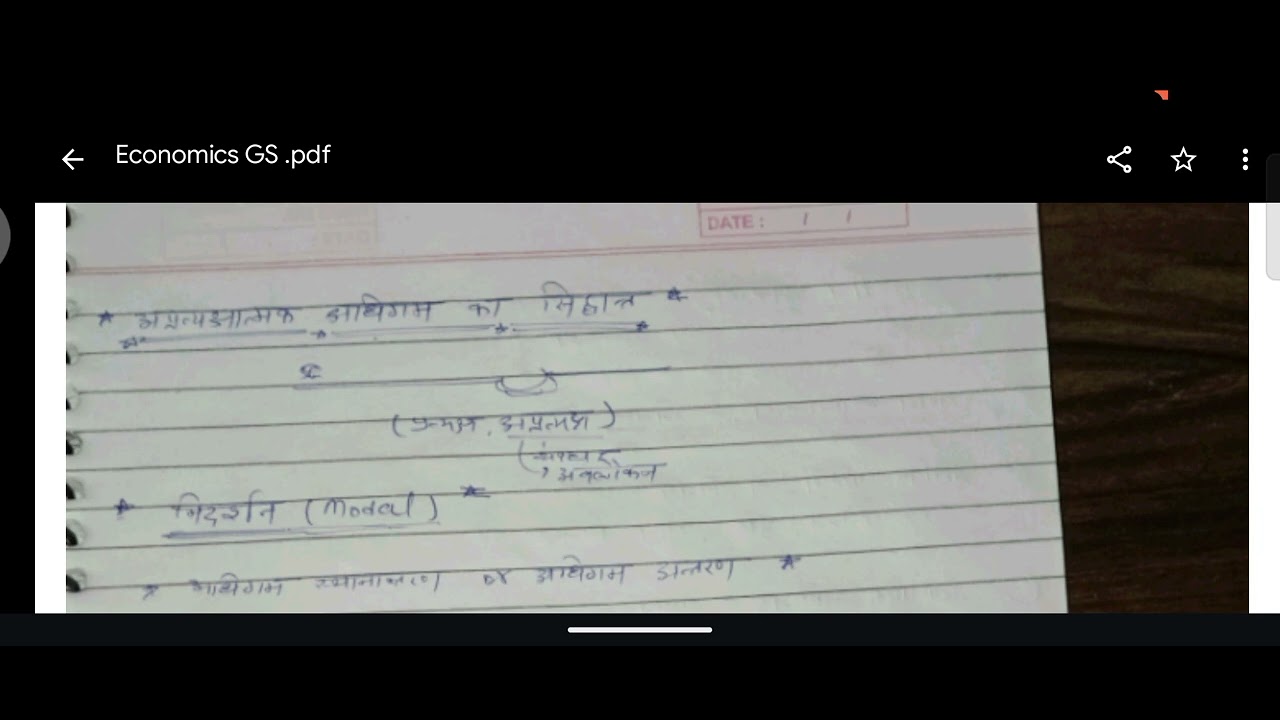 Economics GS .pdf
DATE : / /
* अप्रत्यक्षात्मक अधिगम का सिद्धान्त *
(प्रत्यक्ष, अप्रत्यक्ष)
अवलोकन
* निदर्शन (Modal) *
* अधिगम स्थानान्तरण or अधिगम अन्तरण *